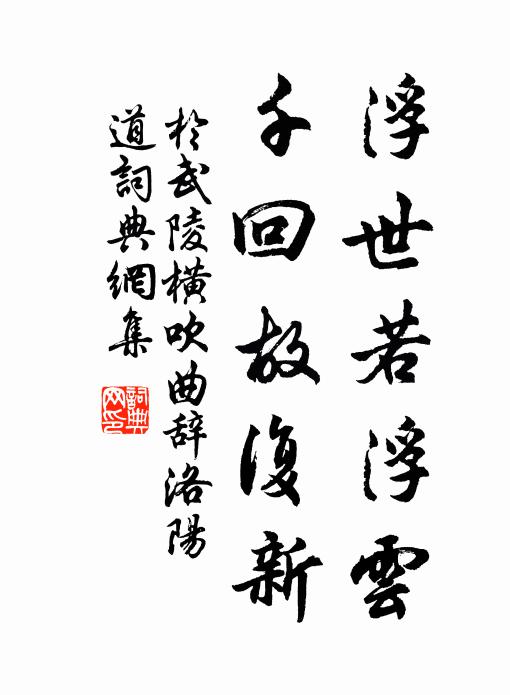 浮世若浮雲
千回故復新
於武陵橫吹曲辞洛陽
道詞典網集
詞典
网印